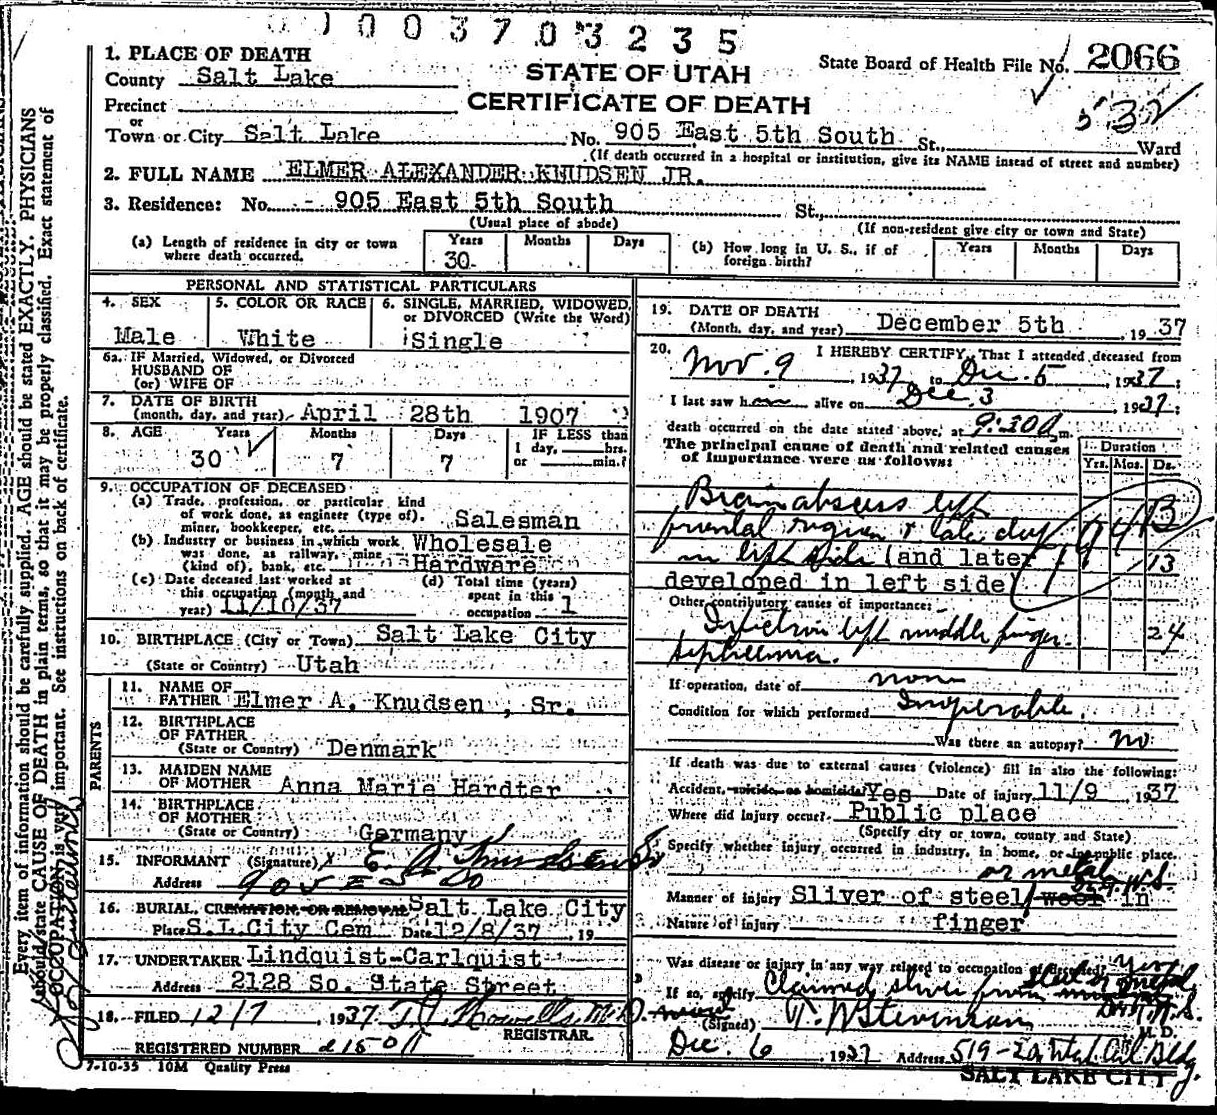 0 1 0 0 3 7 0 3 2 3 5
1. PLACE OF DEATH
County Salt Lake
STATE OF UTAH
State Board of Health File No. 2066
Precinct
CERTIFICATE OF DEATH
532
or
Town or City Salt Lake No. 905 East 5th South St., Ward
(If death occurred in a hospital or institution, give its NAME insead of street and number)
2. FULL NAME ELMER ALEXANDER KNUDSEN JR.
3. Residence: No. - 905 East 5th South St.,
(Usual place of abode) (If non-resident give city or town and State)
(a) Length of residence in city or town where death occurred. Years 30 Months Days
(b) How long in U. S., if of foreign birth? Years Months Days
PERSONAL AND STATISTICAL PARTICULARS
4. SEX Male
5. COLOR OR RACE White
6. SINGLE, MARRIED, WIDOWED, or DIVORCED (Write the Word) Single
6a. IF Married, Widowed, or Divorced
HUSBAND OF
(or) WIFE OF
7. DATE OF BIRTH
(month, day, and year) April 28th 1907
8. AGE Years 30 Months 7 Days 7
IF LESS than
1 day, hrs.
or min.?
9. OCCUPATION OF DECEASED
(a) Trade, profession, or particular kind
of work done, as engineer (type of),
miner, bookkeeper, etc. Salesman
(b) Industry or business in which work Wholesale
was done, as railway, mine
(kind of), bank, etc. Hardware
(c) Date deceased last worked at
this occupation (month and
year) 11/10/37
(d) Total time (years)
spent in this
occupation 1
10. BIRTHPLACE (City or Town) Salt Lake City
(State or Country) Utah
PARENTS
11. NAME OF
FATHER Elmer A. Knudsen, Sr.
12. BIRTHPLACE
OF FATHER
(State or Country) Denmark
13. MAIDEN NAME
OF MOTHER Anna Marie Hardter
14. BIRTHPLACE
OF MOTHER
(State or Country) Germany
15. INFORMANT (Signature) x E A Knudsen Sr
Address 905 E 5 So
16. BURIAL, CREMATION, OR REMOVAL Salt Lake City
Place S.L.City Cem Date 12/8/37, 19
17. UNDERTAKER Lindquist-Carlquist
Address 2128 So. State Street
18. FILED 12/7, 1937. Howells M.D.
REGISTRAR
REGISTERED NUMBER
7-10-35 10M Quality Press
19. DATE OF DEATH
(Month, day, and year) December 5th, 1937
20. I HEREBY CERTIFY, That I attended deceased from
Nov. 9, 1937, to Dec. 5, 1937;
I last saw him alive on Dec. 3, 1937;
death occurred on the date stated above, at 9:30a m.
The principal cause of death and related causes
of importance were as follows:
Duration
Yrs. Mos. Ds.
Brain abscess left 13
frontal region
in left side (and later 13
developed in left side)
Other contributory causes of importance:
Infection left middle finger 24
septicemia.
If operation, date of none
Condition for which performed Inoperable.
Was there an autopsy? no
If death was due to external causes (violence) fill in also the following:
Accident, suicide, or homicide? Yes Date of injury 11/9 1937
Where did injury occur? Public place
(Specify city or town, county and State)
Specify whether injury occurred in industry, in home, or in public place.
or metal
Manner of injury Sliver of steel/ wood in
Nature of injury finger
Was disease or injury in any way related to occupation of deceased? yes
If so, specify Claimed sliver from steel or metal
(Signed) T. W Stevenson M. D.
Dec. 6, 1937 Address 519
SALT LAKE CITY
Every item of information should be carefully supplied. AGE should be stated EXACTLY. PHYSICIANS
should state CAUSE OF DEATH in plain terms, so that it may be properly classified. Exact statement of
OCCUPATION is very important. See instructions on back of certificate.